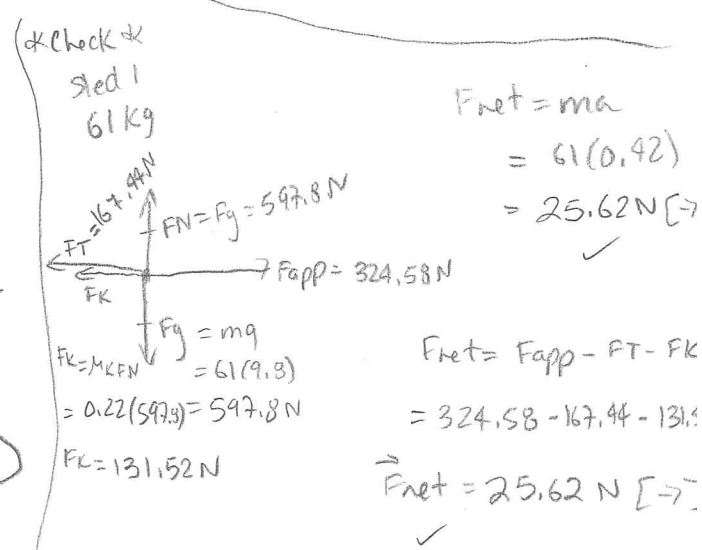 *Check*
Sled 1
61 kg
FT = 167.44N
FN = Fg = 597.8 N
Fapp = 324.58 N
FK
Fg = mg
= 61(9.8)
= 597.8 N
FK = μKFN
= 0.22(597.8)
FK = 131.52 N
Fnet = ma
= 61(0.42)
= 25.62 N [→
✓
Fnet = Fapp - FT - FK
= 324.58 - 167.44 - 131.5
Fnet = 25.62 N [→]
✓